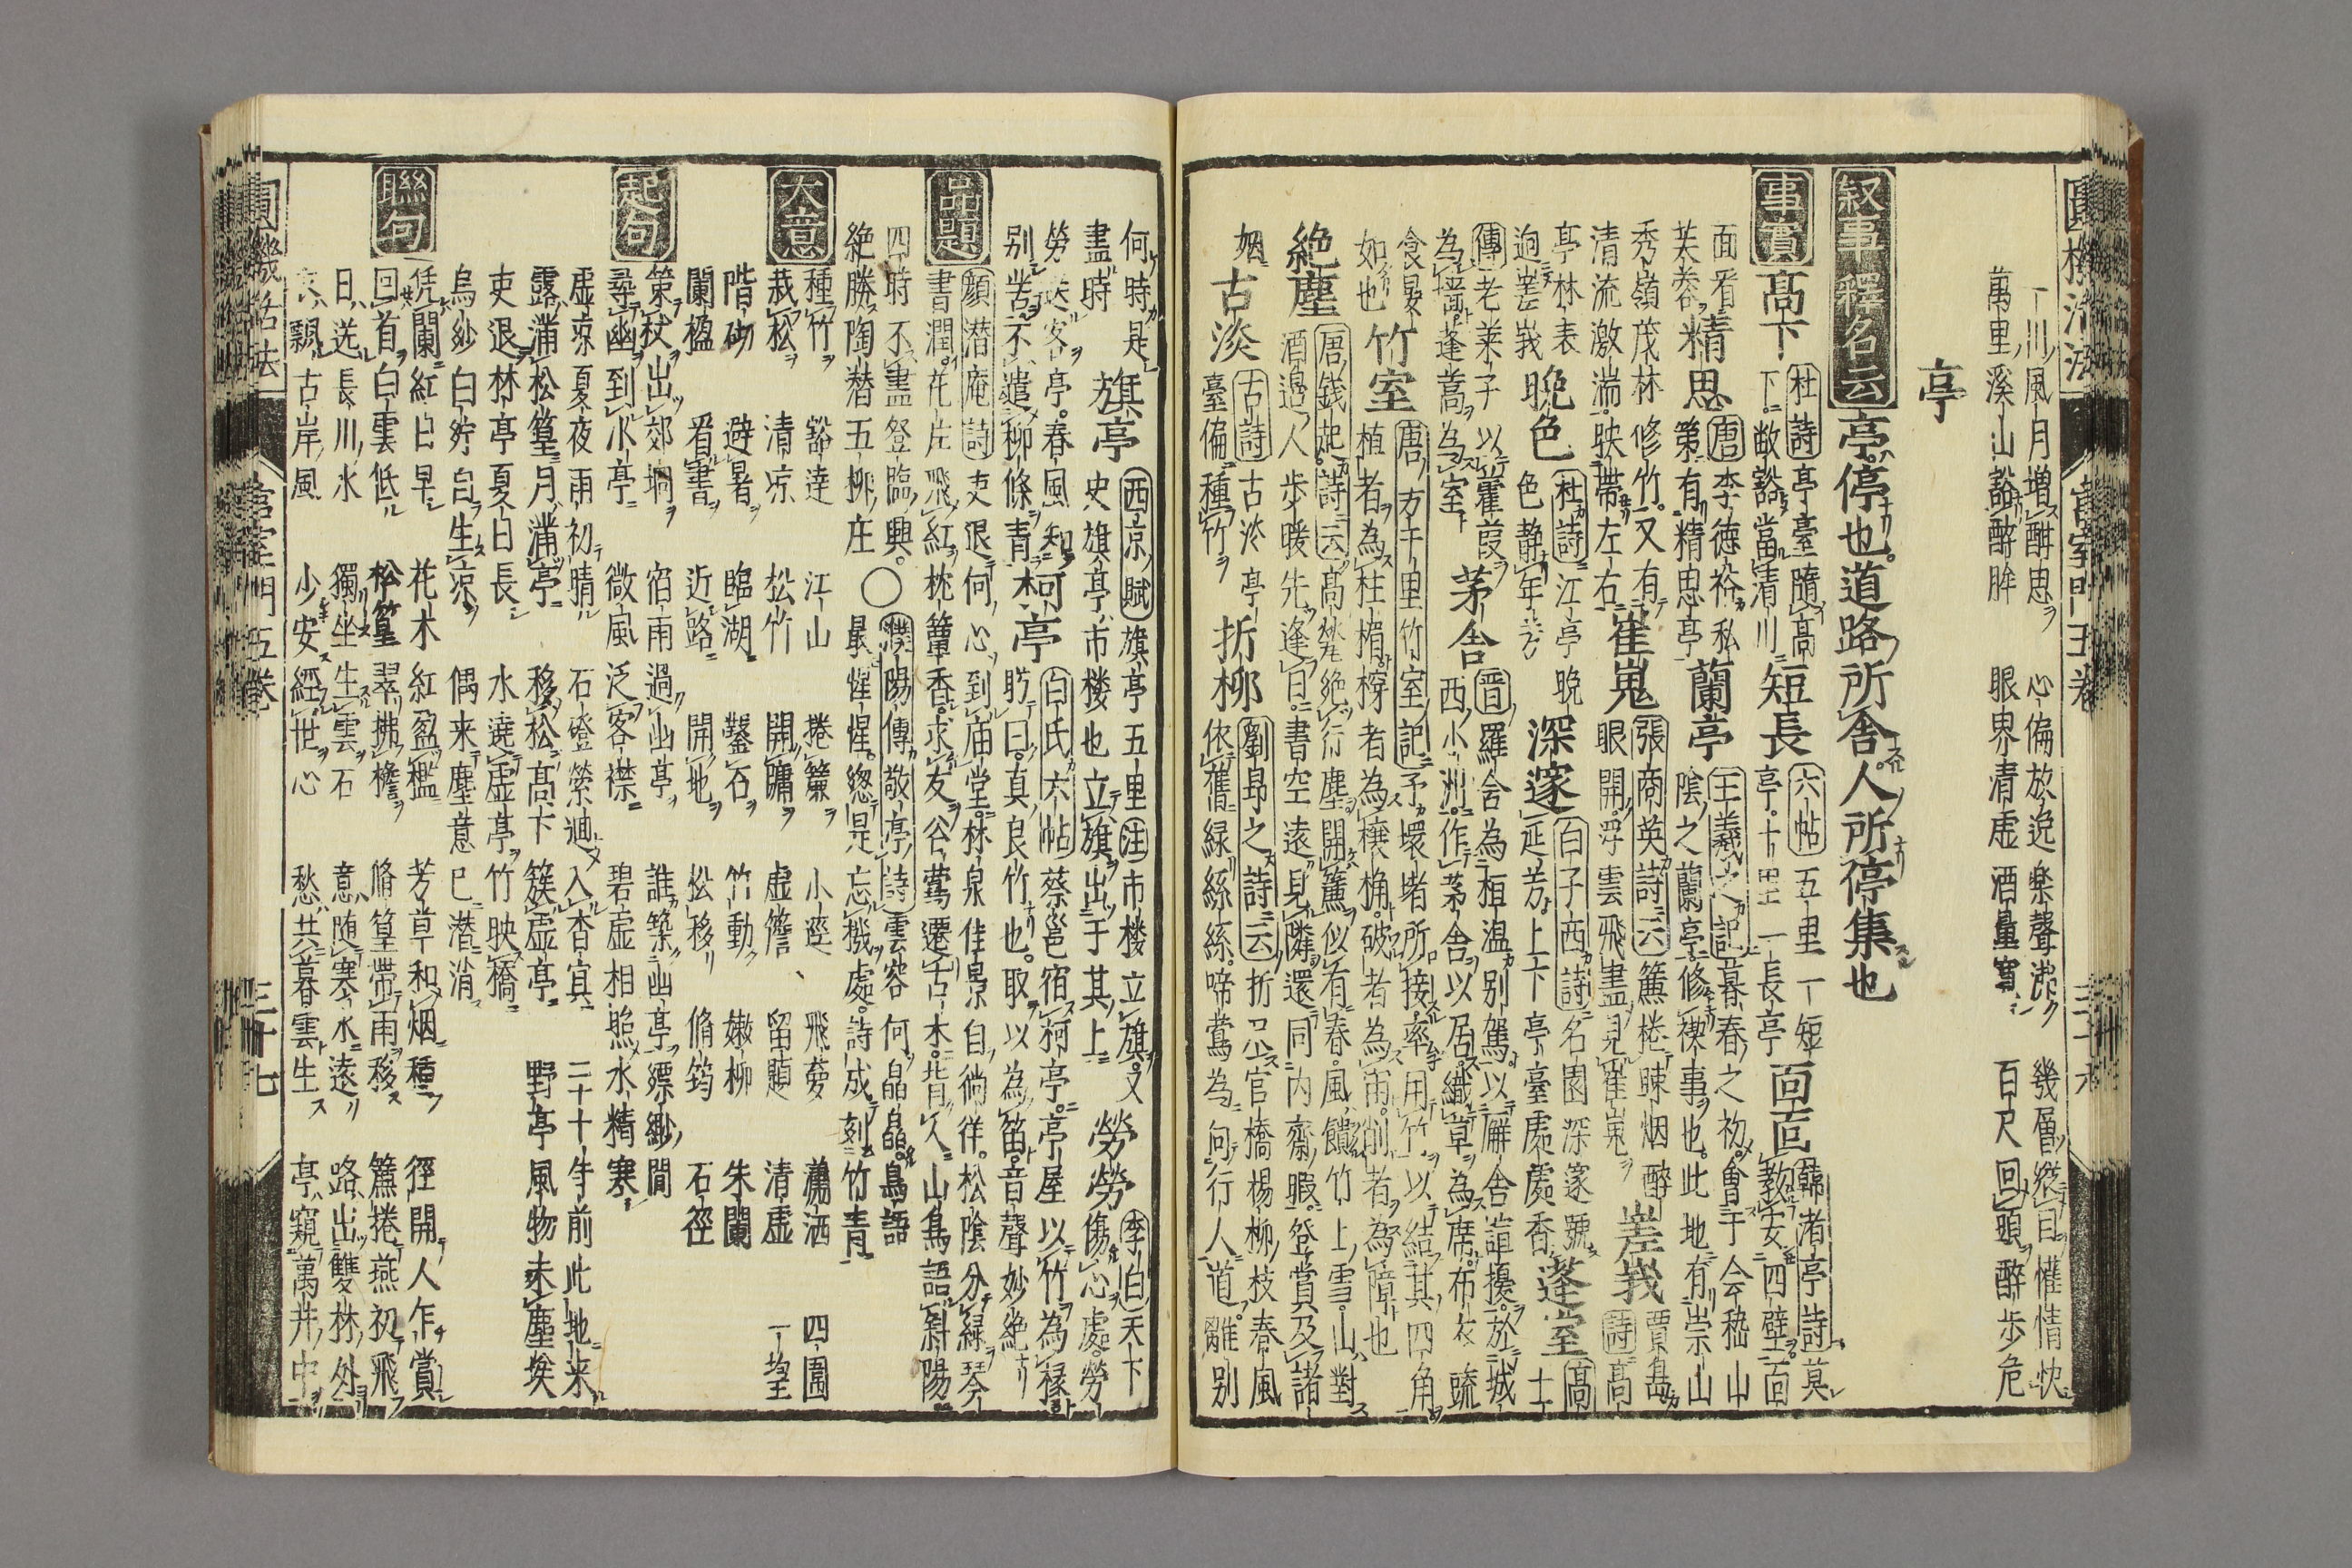 一川風月増酣思 心偏放逸楽聲 幾層 目 情
萬里溪山豁醉眸 眼界清虚酒量寛 百尺回頭醉歩危
亭
叙事 釋名云 亭停也道路所舎人所停集也
事實 髙下 杜詩 亭臺隨髙
下敞豁當清川 短長 六帖 五里一短
亭十里一長亭 面面 韓渚亭詩 莫
教安四壁面
面看芙蓉 精思 唐 李徳裕私
第有精思亭 蘭亭 王羲之記 暮春之初會于会嵆山
陰之蘭亭修禊事也此地有崇山
秀嶺茂林修竹又有
清流激湍映帶左右 崔嵬 張商英詩云 簾捲晴烟醉
眼開浮雲飛盡見崔嵬 嵳峩 賈島
詩 髙
亭林表
迥嵳峩 晩色 杜詩 江亭晩
色静年芳 深蓬 白子西詩 名園深蓬號
延芳上下亭臺處處香 蓬室 髙
士
傳 老莱子以雚葭
為墻蓬蒿為室 茅舎 晋 羅舎為桓温别駕以廨舎諠擾於城
西小洲作茅舎以居織草為席布衣疏
食晏
如也 竹室 唐 方干里竹室記 予壊堵所接率用竹以結其四角
植者為柱楣撑者為榱桷破者為 削者為障也
絶塵 唐 錢起詩云 髙 絶行塵開簾似有春風饋竹上雪山對
酒邉人歩暖先逢日書空遠見隣還同内齋暇登賞及諸
姻 古淡 古詩 古淡亭
臺偏種竹 折柳 劉昻之詩云 折公官橋楊柳枝春風
依舊緑絲絲啼鶯為向行人道離别
何時是
盡時 旗亭 西京賦 旗亭五里 注 市楼立旗又
史旗亭市楼也立旗出于其上 勞勞 李白 天下
傷心處勞
勞送客亭春風知
别苦不遣柳條青 柯亭 白氏六帖 蔡邕宿柯亭亭屋以竹為椽
盻曰真良竹也取以為笛音聲妙絶
品題 顔潜庵詩 吏退何心到庙堂林泉佳景自徜徉松陰分緑琴
書潤花片飛紅枕簟香求友谷鶯遷古木背人山鳥語斜陽
四時不盡登臨興 ○ 濮陽傳敬亭詩 雲容何晶晶鳥語
絶勝陶潜五柳庄 最惺惺緫是忘機處詩成刻竹青
大意 種竹 豁達 江山 捲簾 小逕 飛夢 蕭洒 四圍
栽松 清凉 松竹 開牗 虚簷 留題 清虚 一望
階砌 避暑 臨湖 鑿石 竹動 嫩柳 朱闌
闌楹 看書 近路 開地 松移 脩筠 石徑
起句 策杖出郊坰 宿雨過山亭 誰築幽亭縹緲間
尋幽到小亭 微風泛客襟 碧虚相照水精寒
虚凉夏夜雨初晴 石磴縈廻入杳冥 二十年前此地来
露滴松篁月滿亭 移松髙下簇虚亭 野亭風物未塵埃
吏退林亭夏日長 水遶虚亭竹映橋
烏紗白紵自生凉 偶来塵意已潜消
聯句 凭闌紅日早 花木紅盈檻 芳草和烟種 徑開人乍賞
回首白雲低 松篁翠拂檐 脩篁帶雨移 簾捲燕初飛
日 長川水 獨坐生雲石 意随寒水遠 路出雙林外
飄古岸風 少安經世心 愁共暮雲生 亭窺萬井中
圓機活法 宮室門五卷 三十七